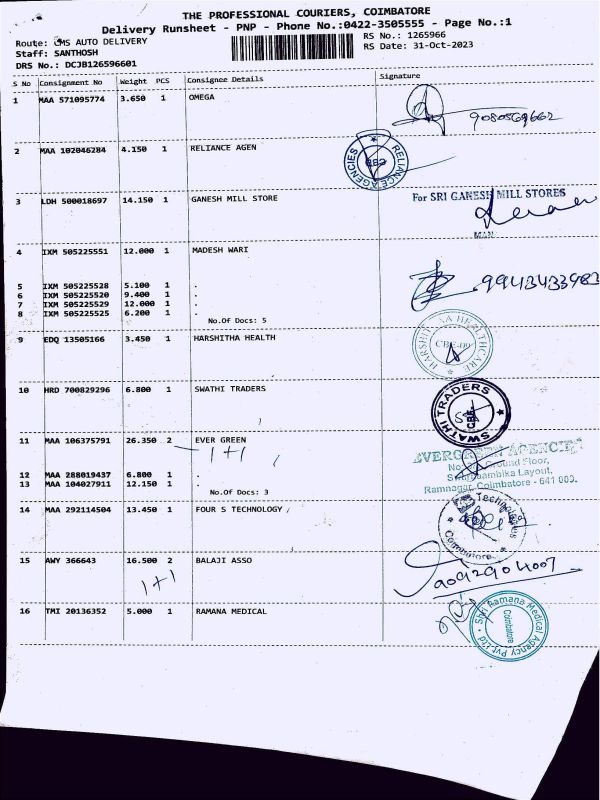 THE PROFESSIONAL COURIERS, COIMBATORE
Delivery Runsheet - PNP - Phone No.:0422-3505555 - Page No.:1
Route: CMS AUTO DELIVERY RS No.: 1265966
Staff: SANTHOSH RS Date: 31-Oct-2023
DRS No.: DCJB126596601
S No Consignment No Weight PCS Consignee Details Signature
1 MAA 571095774 3.650 1 OMEGA
9080569662
2 MAA 102046284 4.150 1 RELIANCE AGEN
RELIANCE AGENCIES CBE
3 LDH 500018697 14.150 1 GANESH MILL STORE
For SRI GANESH MILL STORES
4 IXM 505225551 12.000 1 MADESH WARI
5 IXM 505225528 5.100 1 .
6 IXM 505225520 9.400 1 .
7 IXM 505225529 12.000 1 .
8 IXM 505225525 6.200 1 .
No.Of Docs: 5
9943433983
9 EDQ 13505166 3.450 1 HARSHITHA HEALTH
HARSHITHA HEALTHCARE
10 HRD 700829296 6.800 1 SWATHI TRADERS
SWATHI TRADERS CBE
11 MAA 106375791 26.350 2 EVER GREEN
1+1
12 MAA 288019437 6.800 1 .
13 MAA 104027911 12.150 1 .
No.Of Docs: 3
EVERGREEN AGENCIES
Ground Floor,
Layout,
Ramnagar, Coimbatore - 641 009.
14 MAA 292114504 13.450 1 FOUR S TECHNOLOGY
Technologies Coimbatore
15 AWY 366643 16.500 2 BALAJI ASSO
1+1
16 TMI 20136352 5.000 1 RAMANA MEDICAL
Shri Ramana Medical Agency Pvt Ltd Coimbatore